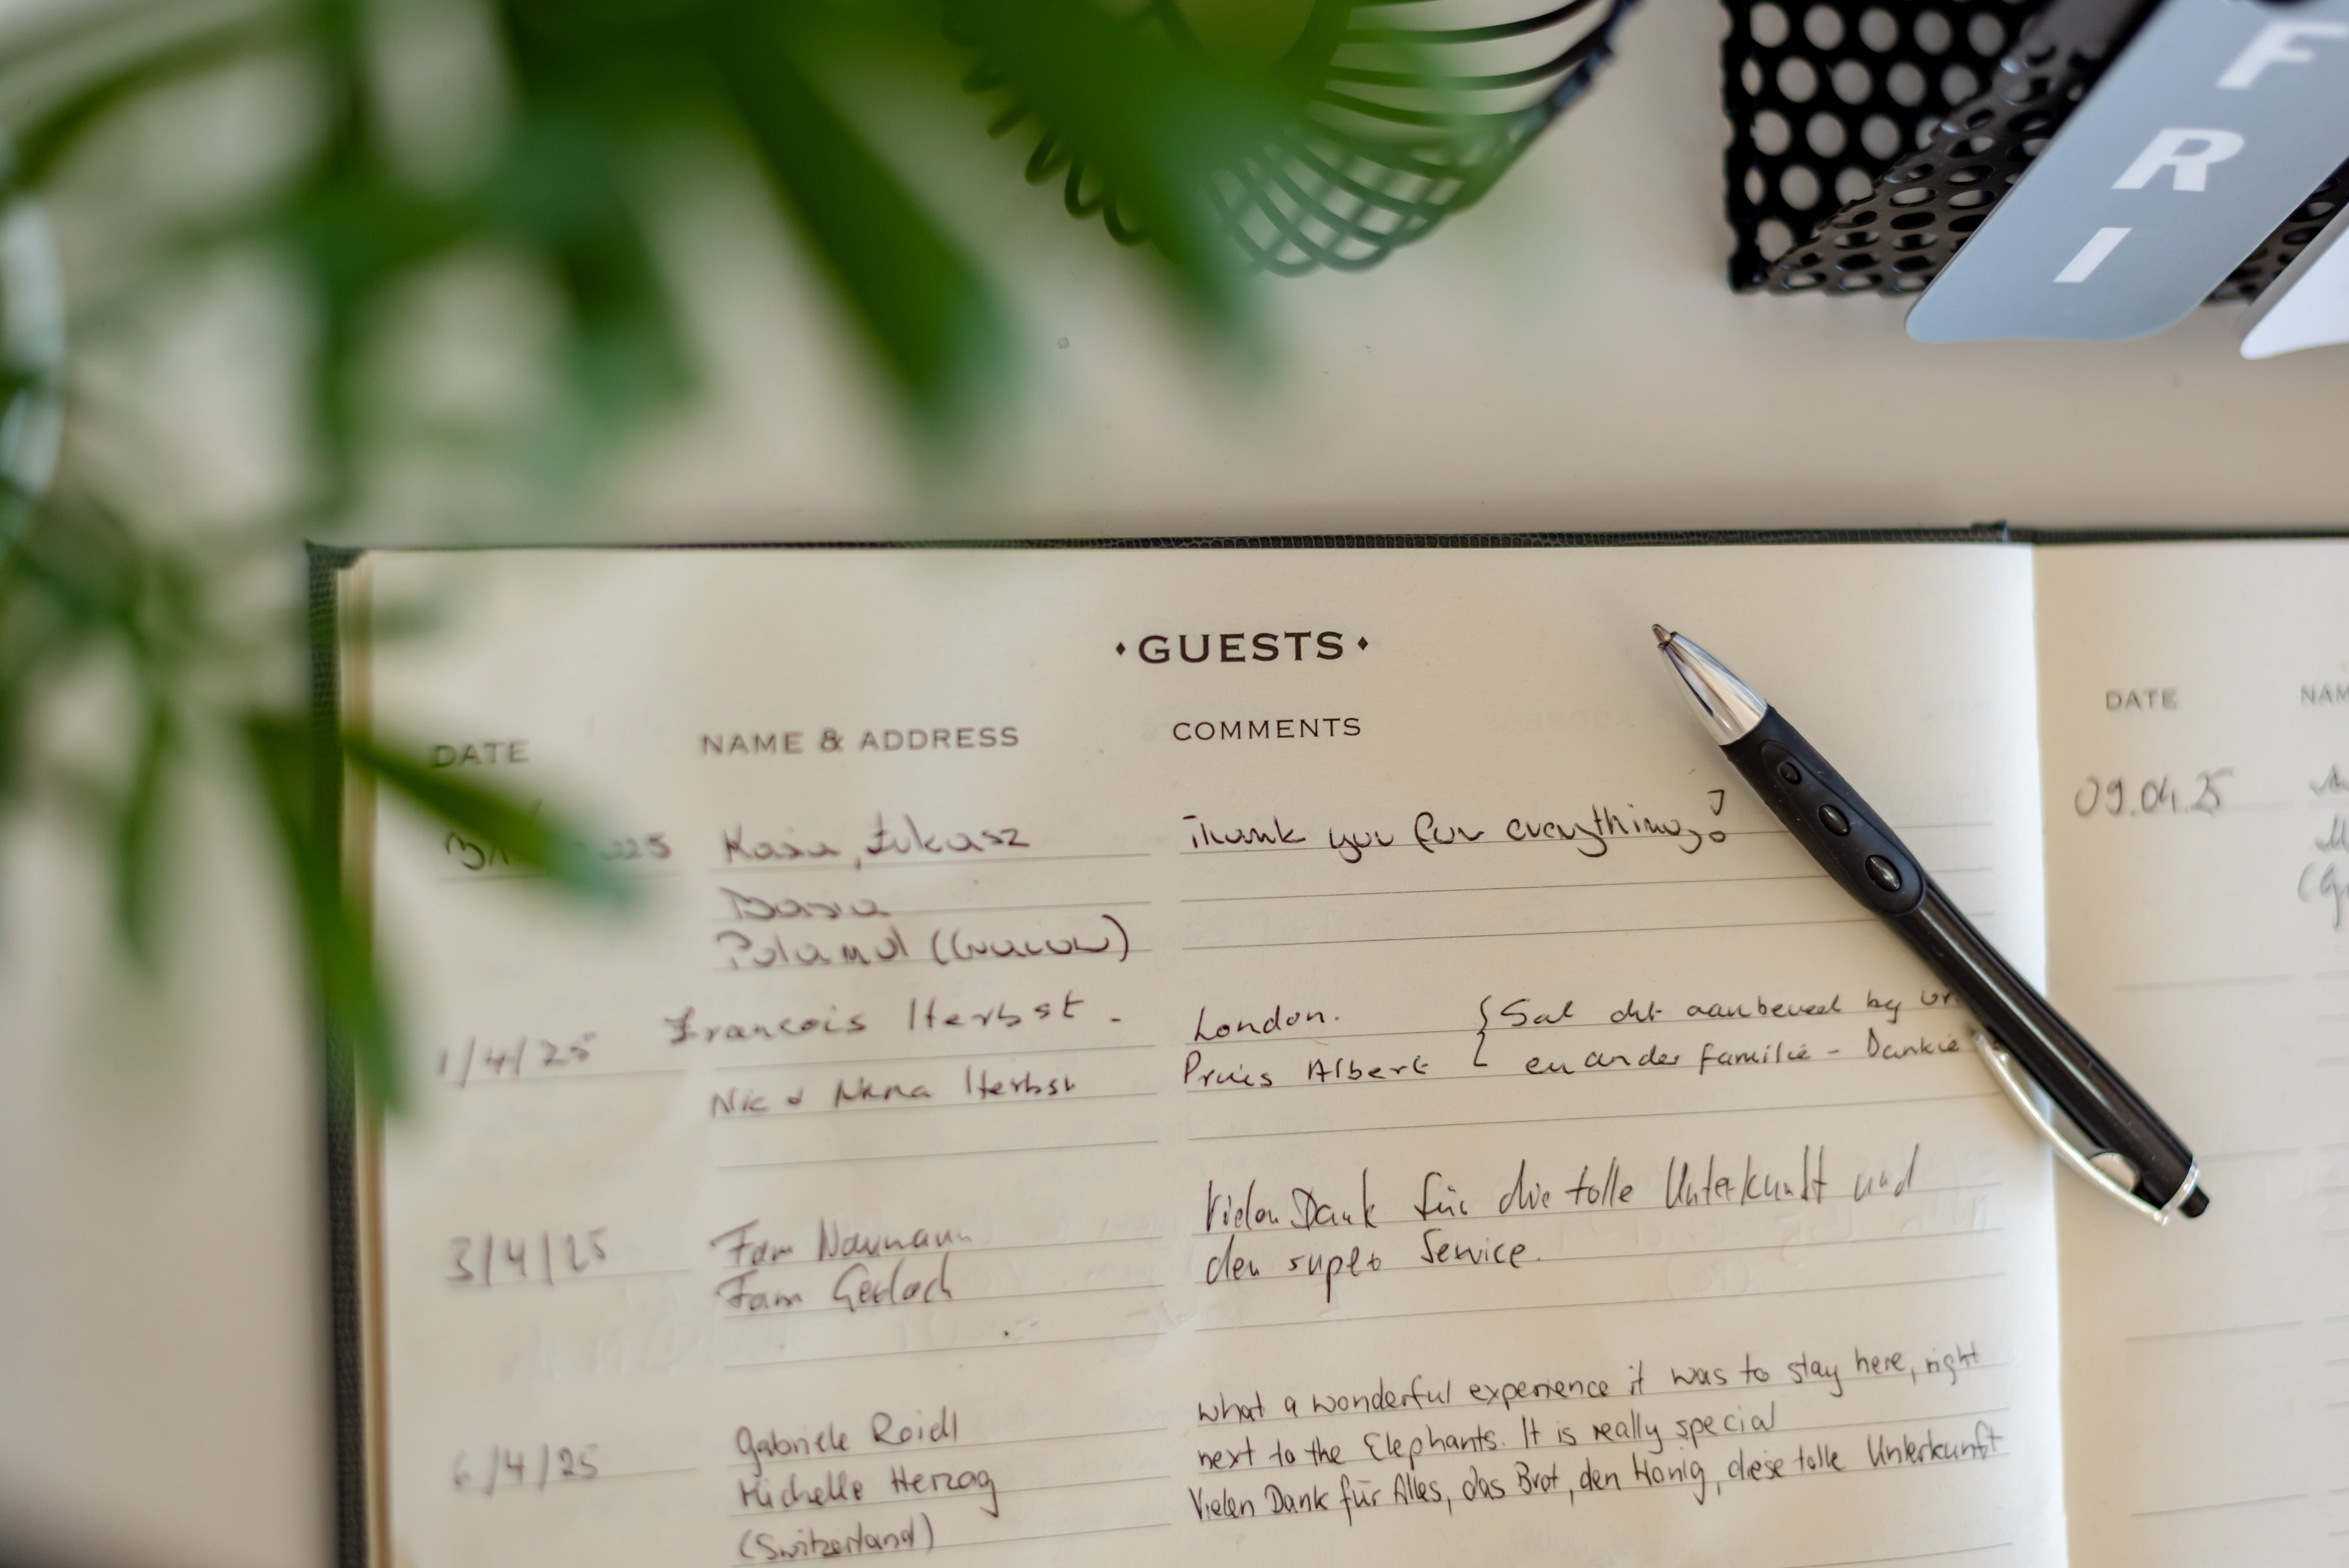 FRI
GUESTS
DATE NAME & ADDRESS COMMENTS
Kasia, Łukasz Thank you for everything!
Basia
Poland (Cracow)
1/4/25 Francois Herbst. London. { Sal dit aanbeveel by
Nic & Herbst Prins Albert en ander familie - Dankie
3/4/25 Fam Naumann Vielen Dank für die tolle Unterkunft und
Fam Gerlach den super Service.
6/4/25 Gabriele Reidl What a wonderful experience it was to stay here, right
Michelle Herzog next to the Elephants. It is really special
(Switzerland) Vielen Dank für Alles, das Brot, den Honig, diese tolle Unterkunft
DATE
09.04.25